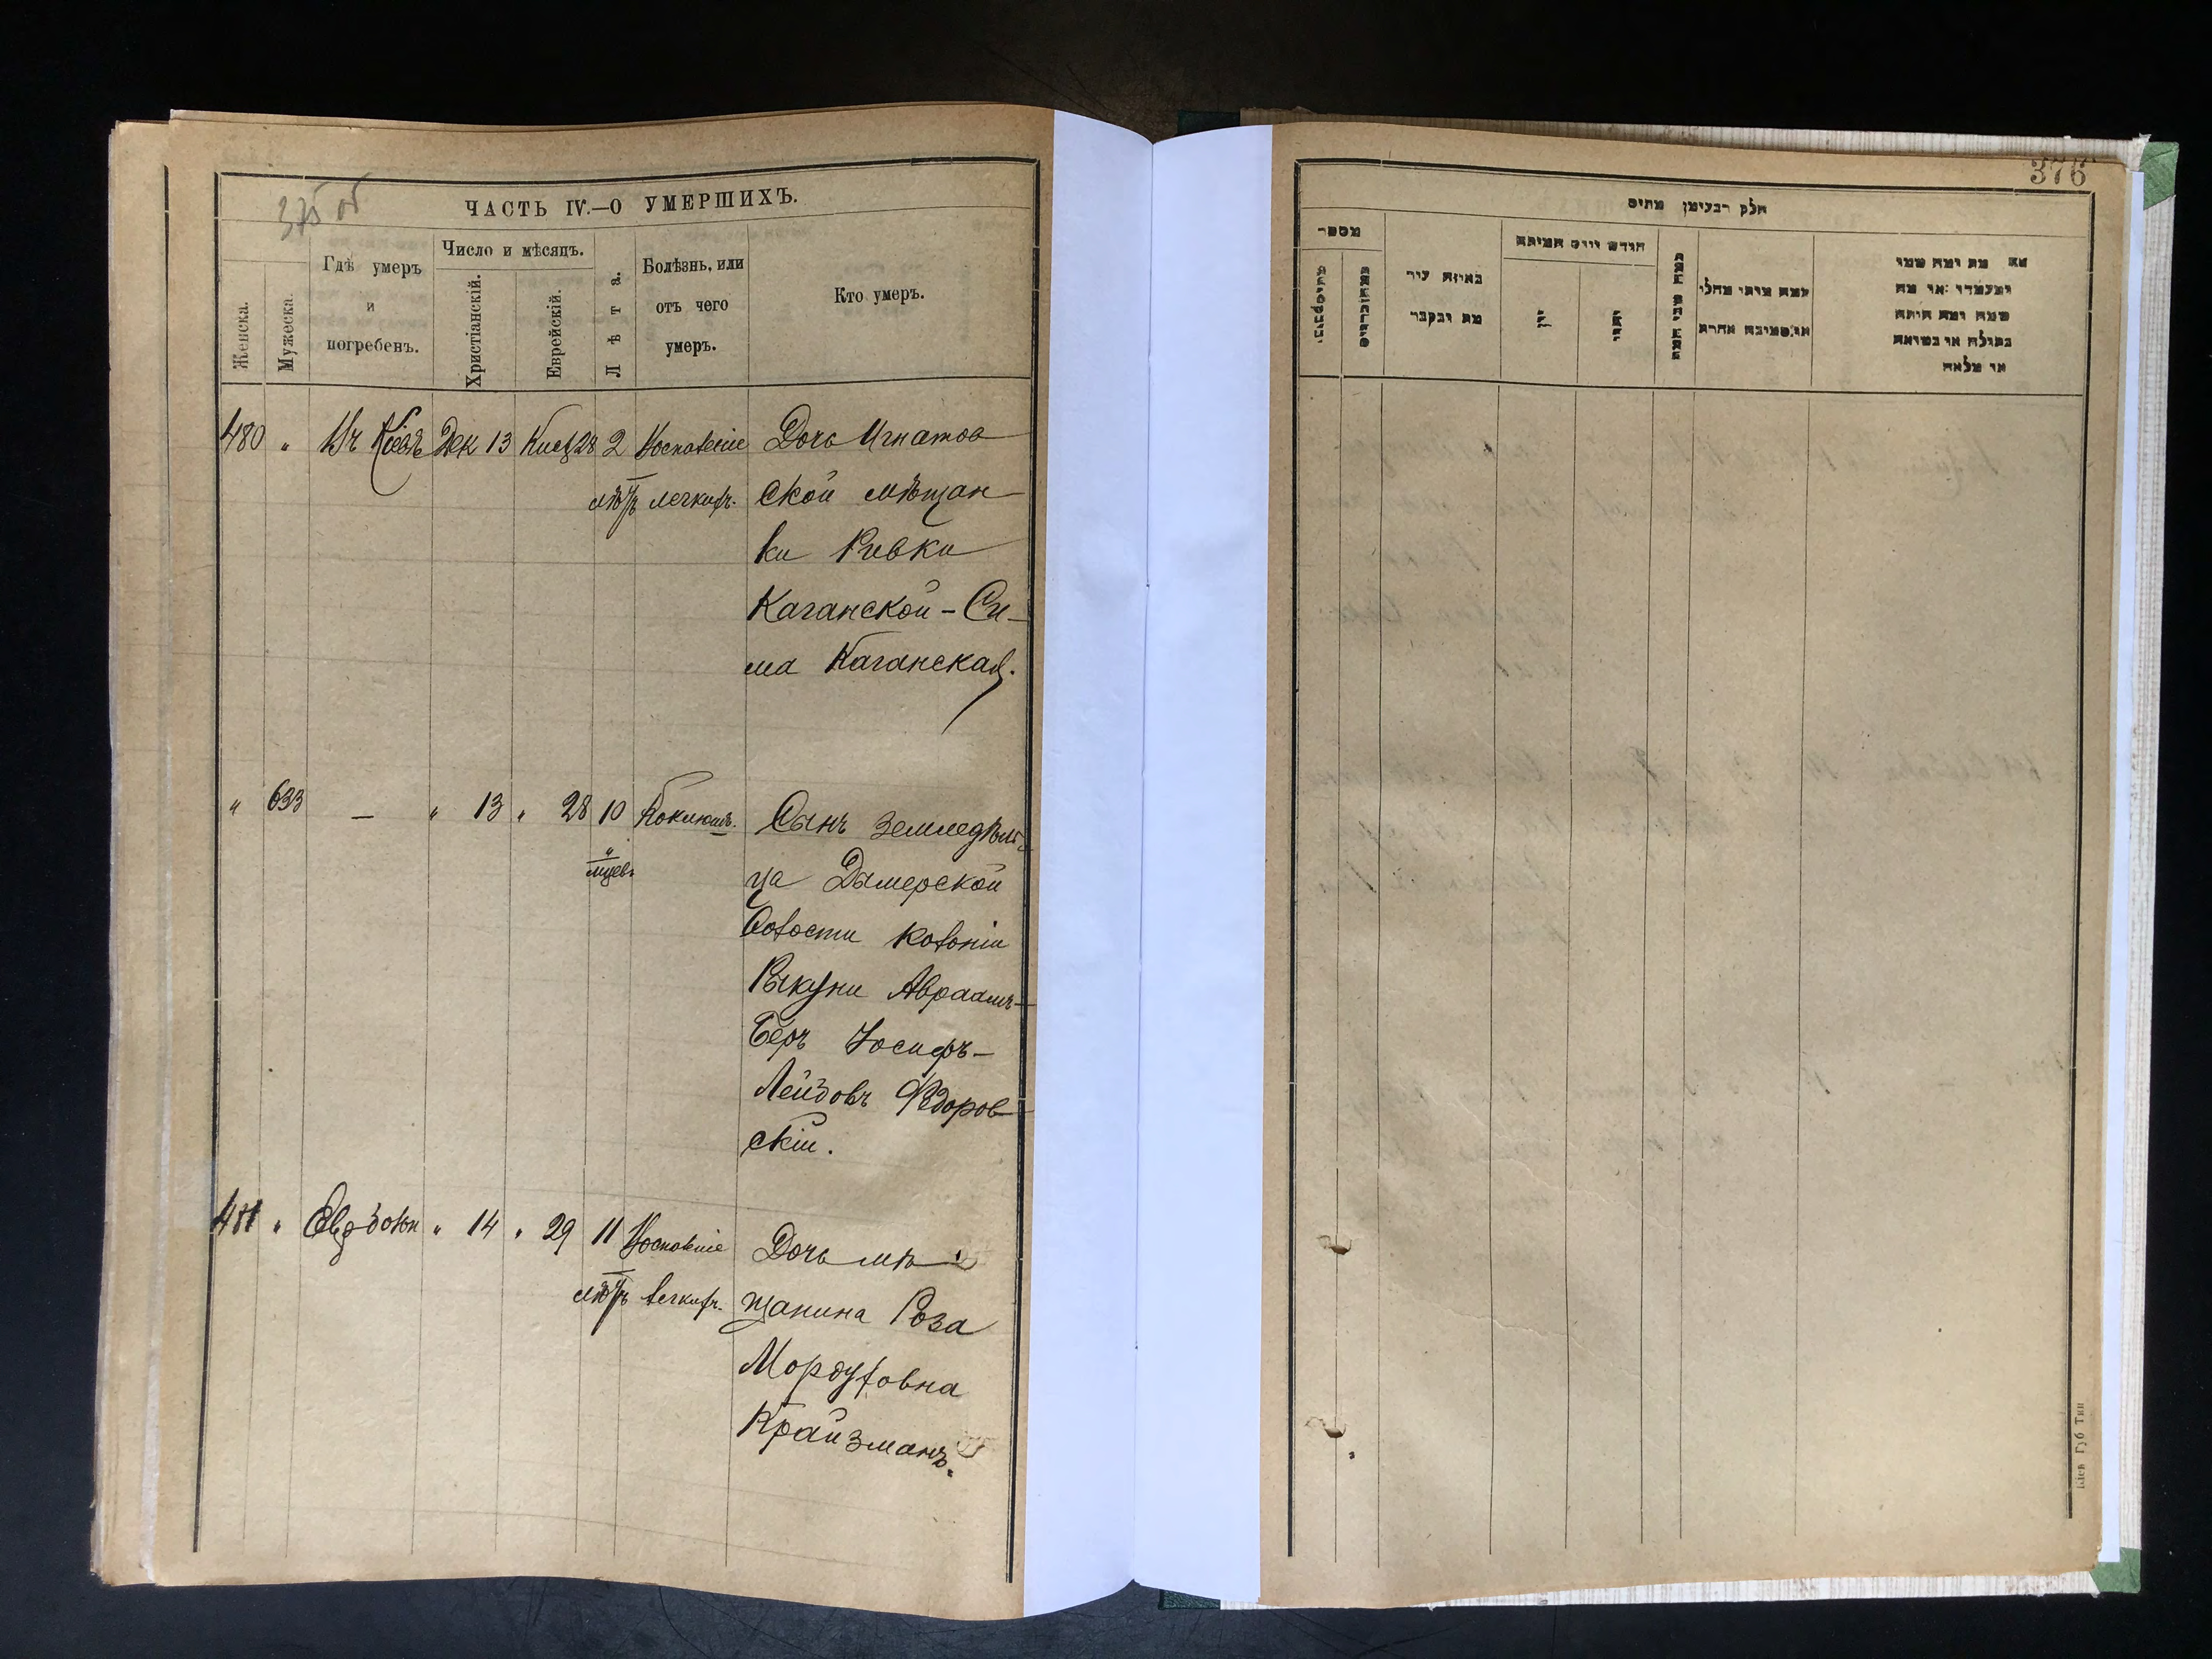 375 об
ЧАСТЬ IV.—О УМЕРШИХЪ.
Женска.
Мужеска.
Гдѣ умеръ
и
погребенъ.
Число и мѣсяцъ.
Христіанскій.
Еврейскій.
Лѣта.
Болѣзнь, или
отъ чего
умеръ.
Кто умеръ.
480 " Въ Кіевѣ Дек 13 Кисл 28 2 Воспаленіе Дочь Игнатов
лѣтъ легкихъ. ской мѣщан
ки Ривки
Каганской - Си-
ма Каганская.
" 633 — " 13 " 28 10 Коклюшъ. Сынъ земледѣль-
мѣсев. ца Дымерской
Волости колоніи
Рыкуни Авраамъ-
Беръ Іосифъ-
Лейзовъ Ѳедоров
скій.
481 " " 14 " 29 11 Воспаленіе Дочь мѣ
лѣтъ легкихъ. щанина Роза
Мордуховна
Крайзманъ.
376
חלק רבעימן מתים
מספר
באיזה עיר
מת ונקבר
חודש ויום המיתה
כמה שני חמה
ממה מיתי מחלי
או מסיבה אחרת
מה מת ומה שמו
ומעמדו או מה
שמה ומה היתה
בתולה או נשואה
או אלמנה
Кіев Губ Тип